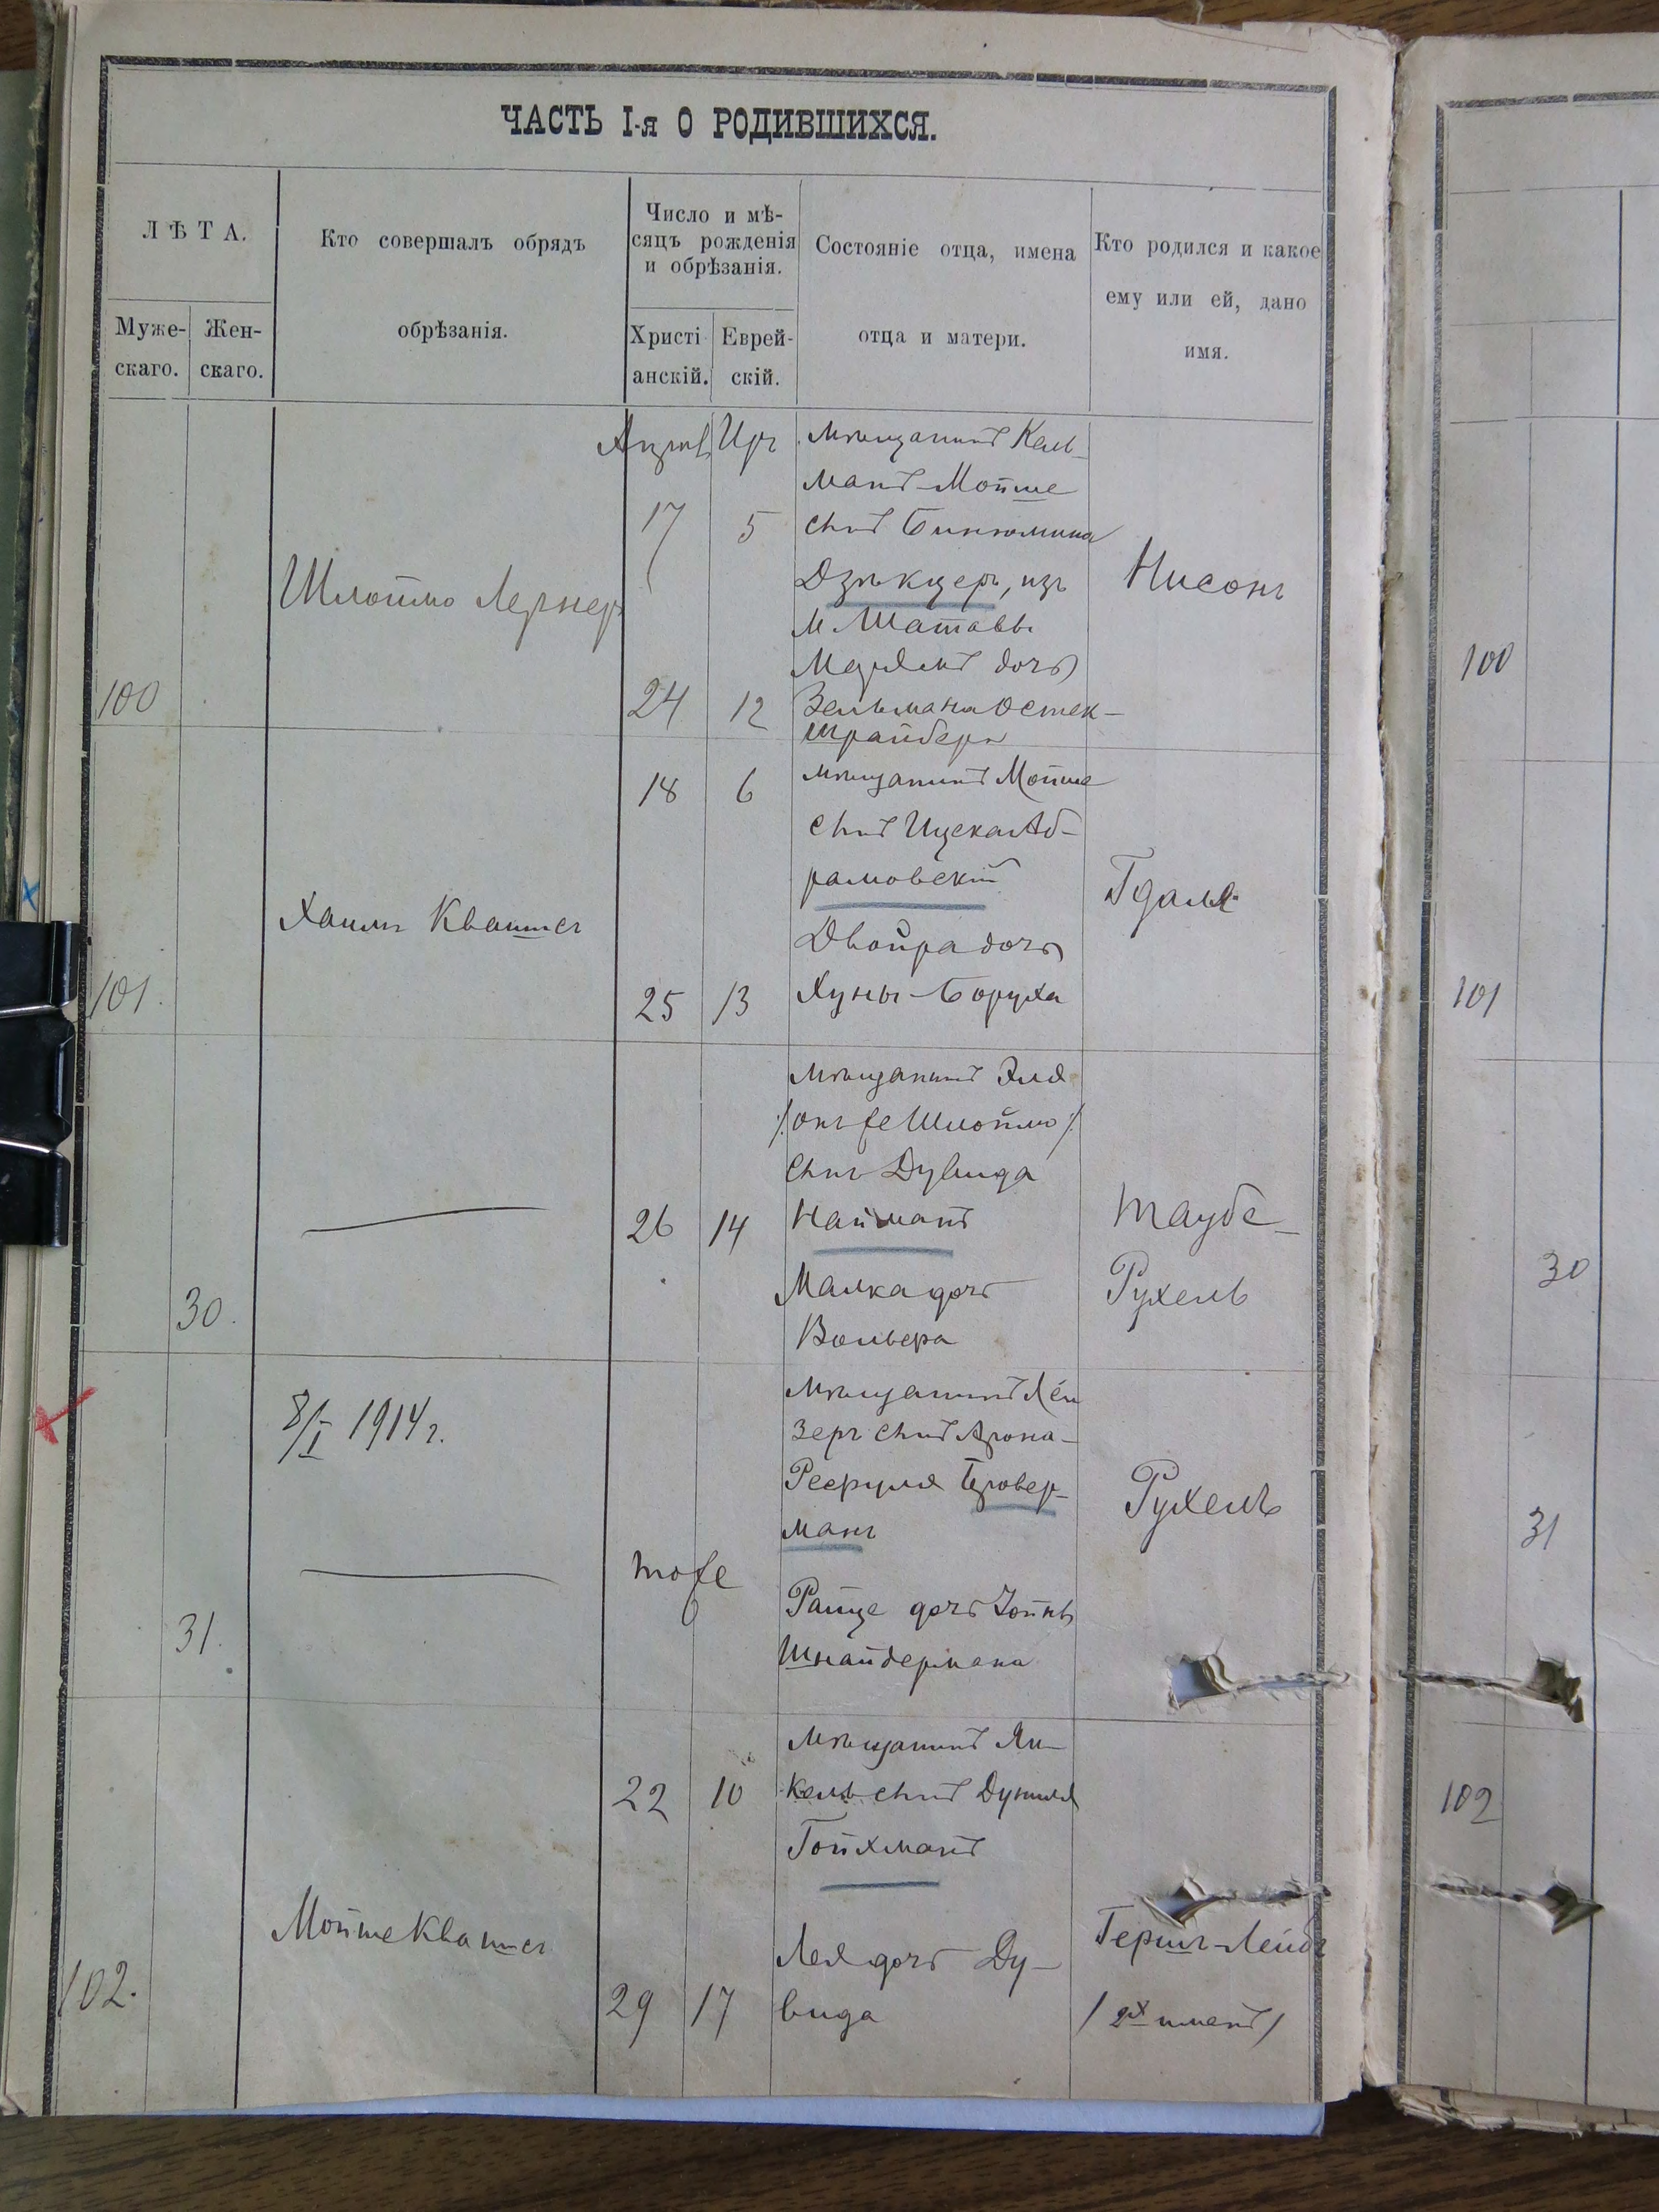 ЧАСТЬ I-я О РОДИВШИХСЯ.
ЛѢТА.
Муже-
скаго.
Жен-
скаго.
Кто совершалъ обрядъ
обрѣзанія.
Число и мѣ-
сяцъ рожденія
и обрѣзанія.
Христі
анскій.
Еврей-
скій.
Состояніе отца, имена
отца и матери.
Кто родился и какое
ему или ей, дано
имя.
100
Шлоймо Лернеръ
17 5
24 12
мѣщанинъ Кель-
манъ-Мойше
сынъ Бинюмина
Дзѣкцеръ, изъ
м. Шатавы
Маріямъ дочь
Зельмана Остек-
шрайбера
Нисонъ
100
101.
Хаимъ Квашъ
18 6
25 13
мѣщанинъ Мойше
сынъ Ицека Аб-
рамовскій
Двойра дочь
Хуны-Боруха
Гдаля
101
30.
26 14
мѣщанинъ Эля
/онъ же Шлоймо/
сынъ Дувида
Найманъ
Малка дочь
Вольвера
Таубе-
Рухель
30
31.
8/I 1914 г.
тоже
мѣщанинъ Лей
зеръ сынъ Арона-
Рефуля Бровер-
манъ
Райце дочь Іойны
Шнайдермана
Рухель
31
102.
Мойше Квашъ
22 10
29 17
мѣщанинъ Ян-
кель сынъ Дуниля
Гойхманъ
Лея дочь Ду-
вида
Гершъ-Лейбъ
/2х именъ/
102